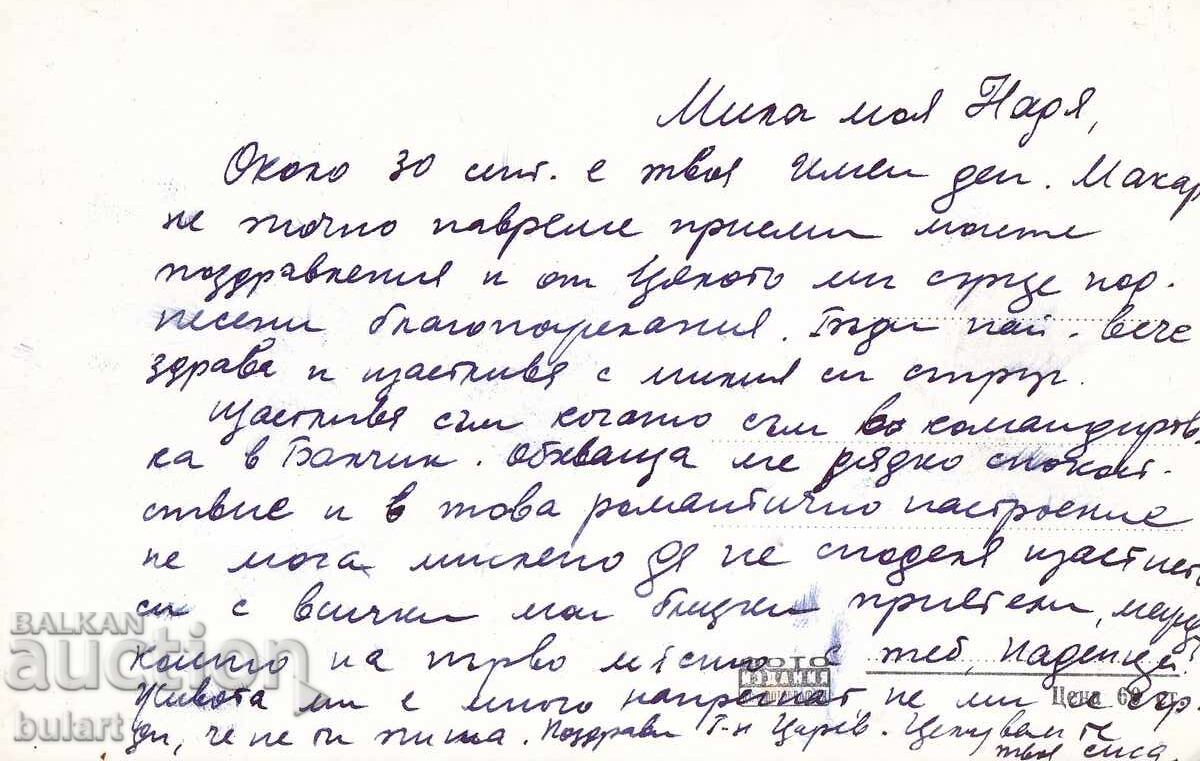 Мила моя Надя,
Около 30 септ. е твоя имен ден. Макар
не точно навреме приеми моите
поздравления и от цялото ми сърце под-
несени благопожелания. Бъди най-вече
здрава и щастлива с милия си съпруг.
Щастлива съм когато съм в командиров-
ка в Балчик. Обхваща ме рядко спокой-
ствие и в това романтично настроение
не мога мислено да не споделя щастиет
си с всички мои близки приятели, между
които на първо място с теб, Наденце!
Живота ми е много напрегнат, не ми се сър-
ди, че не ти пиша. Поздрави Г-н Царев. Целувам те
твоя
ФОТО
ИЗДАНИЯ
Цена 60 ст.
BALKAN
auction
bulart